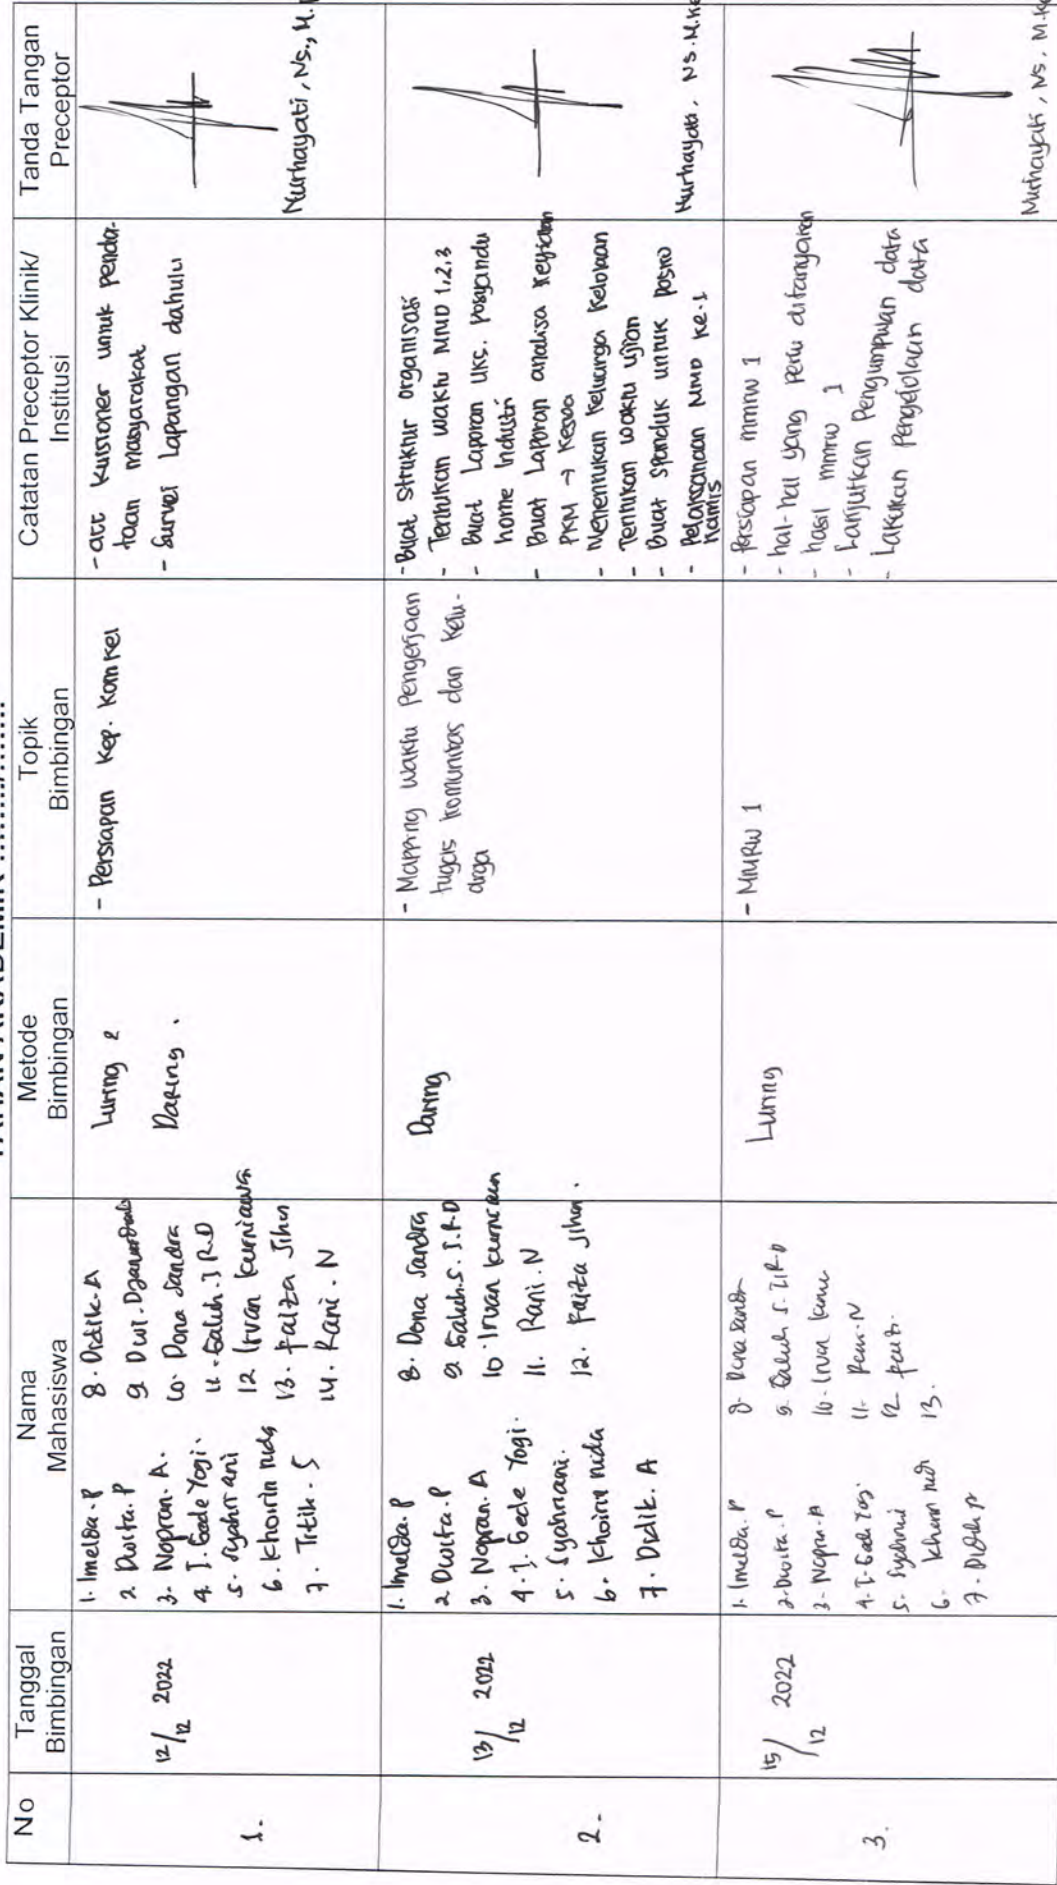 No
Tanggal
Bimbingan
Nama
Mahasiswa
Metode
Bimbingan
Topik
Bimbingan
Catatan Preceptor Klinik/
Institusi
Tanda Tangan
Preceptor
1.
12/12 2022
1. Imelda. P
2. Dwita. P
3. Nopran. A.
4. I. Gede Yogi.
5. Syahriani
6. Khoirin nida
7. Titik. S
8. Didik. A
9. Dwi.
10. Dona Sandra
11. Galuh. I R D
12 Irvan kurniawan
13. Faiza Jihan
14. Rani. N
Luring &
Daring.
- Persiapan Kep. Komkel
- acc kuisioner untuk penda-
taan masyarakat
- Survei Lapangan dahulu
Nurhayati, Ns., M.
2.
13/12 2022
1. Imelda. P
2 Dwita. P
3. Nopran. A
4. I. Gede Yogi.
5. Syahriani.
6. Khoirin nida
7. Didik. A
8. Dona Sandra
9. Galuh. S. I. R. D
10. Irvan kurniawan
11. Rani. N
12. Faiza Jihan.
Daring
- Mapping waktu pengerjaan
tugas komunitas dan kelu-
arga
- Buat Struktur organisasi
- Tentukan waktu MMD 1,2,3
- Buat Laporan UKS. Posyandu
home Industri
- Buat Laporan analisa Kegiatan
PKM → Keswa
- Menentukan Keluarga Kelolaan
- Tentukan waktu ujian
- Buat Spanduk untuk posko
- Pelaksanaan MMD Ke-1
Kamis
Nurhayati, Ns. M.Ke
3.
15/12 2022
1. Imelda. P
2. Dwita. P
3. Nopran. A
4. I. Gede Yogi.
5. Syahrni
6.
7. Didik A
8. Dona Sandr
9. Galuh S. I R D
10. Irva kurni
11. Rani. N
12
13.
Luring
- MMRW 1
- Persiapan mmrw 1
- hal-hal yang perlu ditanyakan
- hasil mmrw 1
- Lanjutkan Pengumpulan data
- Lakukan Pengelolaan data
Nurhayati, Ns, M.Ke